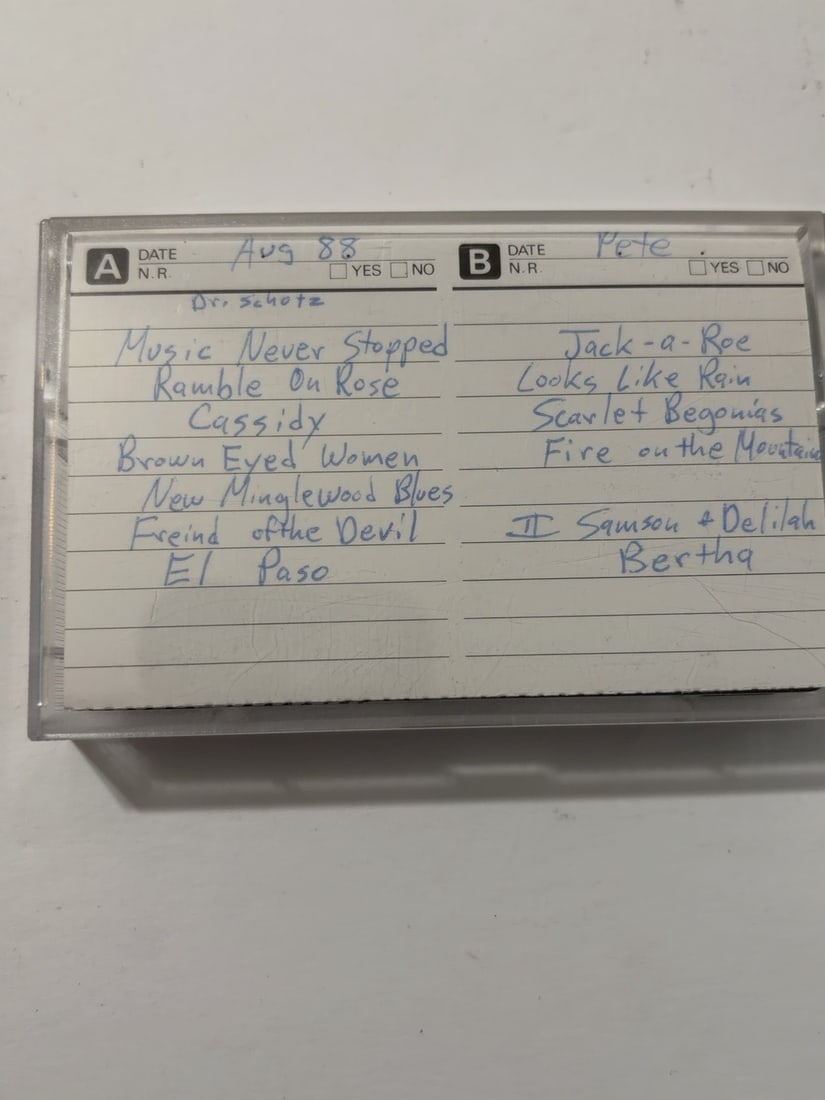 A DATE Aug 88
N.R. YES NO
Dr. Schotz
Music Never Stopped
Ramble On Rose
Cassidy
Brown Eyed Women
New Minglewood Blues
Freind of the Devil
El Paso
B DATE Pete .
N.R. YES NO
Jack-a-Roe
Looks Like Rain
Scarlet Begonias
Fire on the Mountain
II Samson + Delilah
Bertha